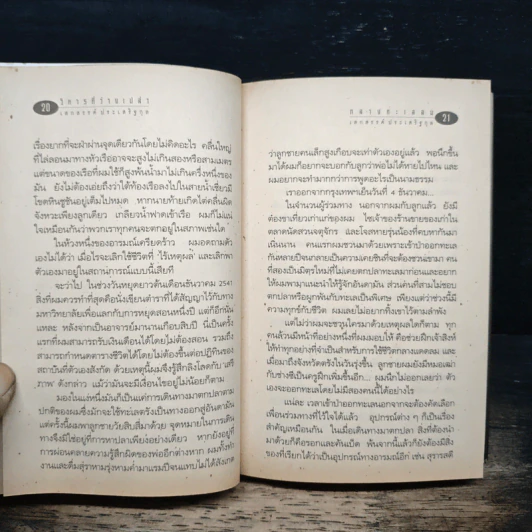 20
วิหารที่ว่างเปล่า
เสกสรรค์ ประเสริฐกุล
เรื่องยากที่จะฝ่าผ่านจุดเดียวกันโดยไม่คิดอะไร คลื่นใหญ่
ที่ไล่ลอนมาทางหัวเรืออาจจะสูงไม่เกินสองหรือสามเมตร
แต่ขนาดของเรือที่ผมใช้ก็สูงพ้นน้ำมาไม่เกินครึ่งหนึ่งของ
มัน ยังไม่ต้องเอ่ยถึงว่าใต้ท้องเรือลงไปในสายน้ำเชี่ยวมี
โขดหินชูชันอยู่เต็มไปหมด หากนายท้ายเกิดไต่คลื่นผิด
จังหวะเพียงลูกเดียว เกลียวน้ำฟาดเข้าเรือ ผมก็ไม่แน่
ใจเหมือนกันว่าพวกเราทุกคนจะตกอยู่ในสภาพเช่นใด
ในห้วงหนึ่งของอารมณ์เครียดคร้าว ผมอดถามตัว
เองไม่ได้ว่า เมื่อไรจะเลิกใช้ชีวิตที่ 'ไร้เหตุผล' และเลิกพา
ตัวเองมาอยู่ในสถานการณ์แบบนี้เสียที
จะว่าไป ในช่วงวันหยุดยาวต้นเดือนธันวาคม 2541
สิ่งที่ผมควรทำที่สุดคือนั่งเขียนตำราที่ได้สัญญาไว้กับทาง
มหาวิทยาลัยเพื่อแลกกับการหยุดสอนหนึ่งปี แต่ก็อีกนั่น
แหละ หลังจากเป็นอาจารย์มานานเกือบสิบปี นี่เป็นครั้ง
แรกที่ผมสามารถรับเงินเดือนได้โดยไม่ต้องสอน รวมถึง
สามารถกำหนดตารางชีวิตได้โดยไม่ต้องขึ้นต่อปฏิทินของ
สถาบันที่ตัวเองสังกัด ด้วยเหตุนี้ผมจึงรู้สึกลิงโลดกับ 'เสรี
ภาพ' ดังกล่าว แม้ว่ามันจะมีเงื่อนไขอยู่ไม่น้อยก็ตาม
มองในแง่หนึ่งมันก็เป็นแค่การเดินทางมาตกปลาตาม
ปกติของผมซึ่งมักจะใช้ทะเลตรังเป็นทางออกสู่อันดามัน
แต่ครั้งนี้ผมพาลูกชายวัยสิบสี่มาด้วย จุดหมายในการเดิน
ทางจึงมิใช่อยู่ที่การหาปลาเพียงอย่างเดียว หากยังอยู่ที่
การผ่อนคลายความรู้สึกผิดของพ่ออีกต่างหาก ผมทั้งทำ
งานและดื่มสุราหามรุ่งหามค่ำมาแรมปีจนแทบไม่ได้สังเกต
21
เสกสรรค์ ประเสริฐกุล
ว่าลูกชายคนเล็กสูงเกือบจะเท่าตัวเองอยู่แล้ว พอนึกขึ้น
มาได้ผมก็อยากจะบอกกับลูกว่าพ่อไม่ได้หายไปไหน และ
ผมอยากจะทำมากกว่าการพูดอะไรเป็นนามธรรม
เราออกจากกรุงเทพฯเย็นวันที่ 4 ธันวาคม...
ในจำนวนผู้ร่วมทาง นอกจากผมกับลูกแล้ว ยังมี
ต๋องขาเที่ยวเก่าแก่ของผม ไซเจ้าของร้านขายของเก่าใน
ตลาดนัดสวนจตุจักร และโจสหายรุ่นน้องที่คบหากันมา
เนิ่นนาน คนแรกผมชวนมาด้วยเพราะเข้าป่าออกทะเล
กันหลายปีจนกลายเป็นความเคยชินที่จะต้องชวนเขามา คน
ที่สองเป็นมิตรใหม่ที่ไม่เคยตกปลาทะเลมาก่อนและอยาก
ให้ผมพามาแนะนำให้รู้จักอันดามัน ส่วนคนที่สามไม่ชอบ
ตกปลาหรือผูกพันกับทะเลเป็นพิเศษ เพียงแต่ว่าช่วงนี้มี
ความทุกข์กับชีวิต ผมเลยไม่อยากทิ้งเขาไว้ตามลำพัง
แต่ไม่ว่าผมจะชวนใครมาด้วยเหตุผลใดก็ตาม ทุก
คนล้วนมีหน้าที่อย่างหนึ่งที่ผมมอบให้ คือช่วยฝึกเจ้าสิงห์
ให้ทำทุกอย่างที่จำเป็นสำหรับการใช้ชีวิตกลางแดดลม และ
เมื่อมาถึงจังหวัดตรังในวันรุ่งขึ้น ลูกชายผมยังมีหมอเฒ่า
กับช่างชีเป็นครูฝึกเพิ่มขึ้นอีก... ผมนึกไม่ออกเลยว่า ตัว
เองจะออกทะเลโดยไม่มีสองคนนี้ได้อย่างไร
แน่ละ เวลาเข้าป่าออกทะเลนอกจากจะต้องคัดเลือก
เพื่อนร่วมทางที่ไว้ใจได้แล้ว อุปกรณ์ต่าง ๆ ก็เป็นเรื่อง
สำคัญเหมือนกัน ในเมื่อเดินทางมาตกปลา สิ่งที่ต้องนำ
มาด้วยก็คือรอกและคันเบ็ด พ้นจากนี้แล้วก็ยังต้องมีสิ่ง
ของที่เรียกได้ว่าเป็นอุปกรณ์ทางอารมณ์อีก เช่น สุรารสดี